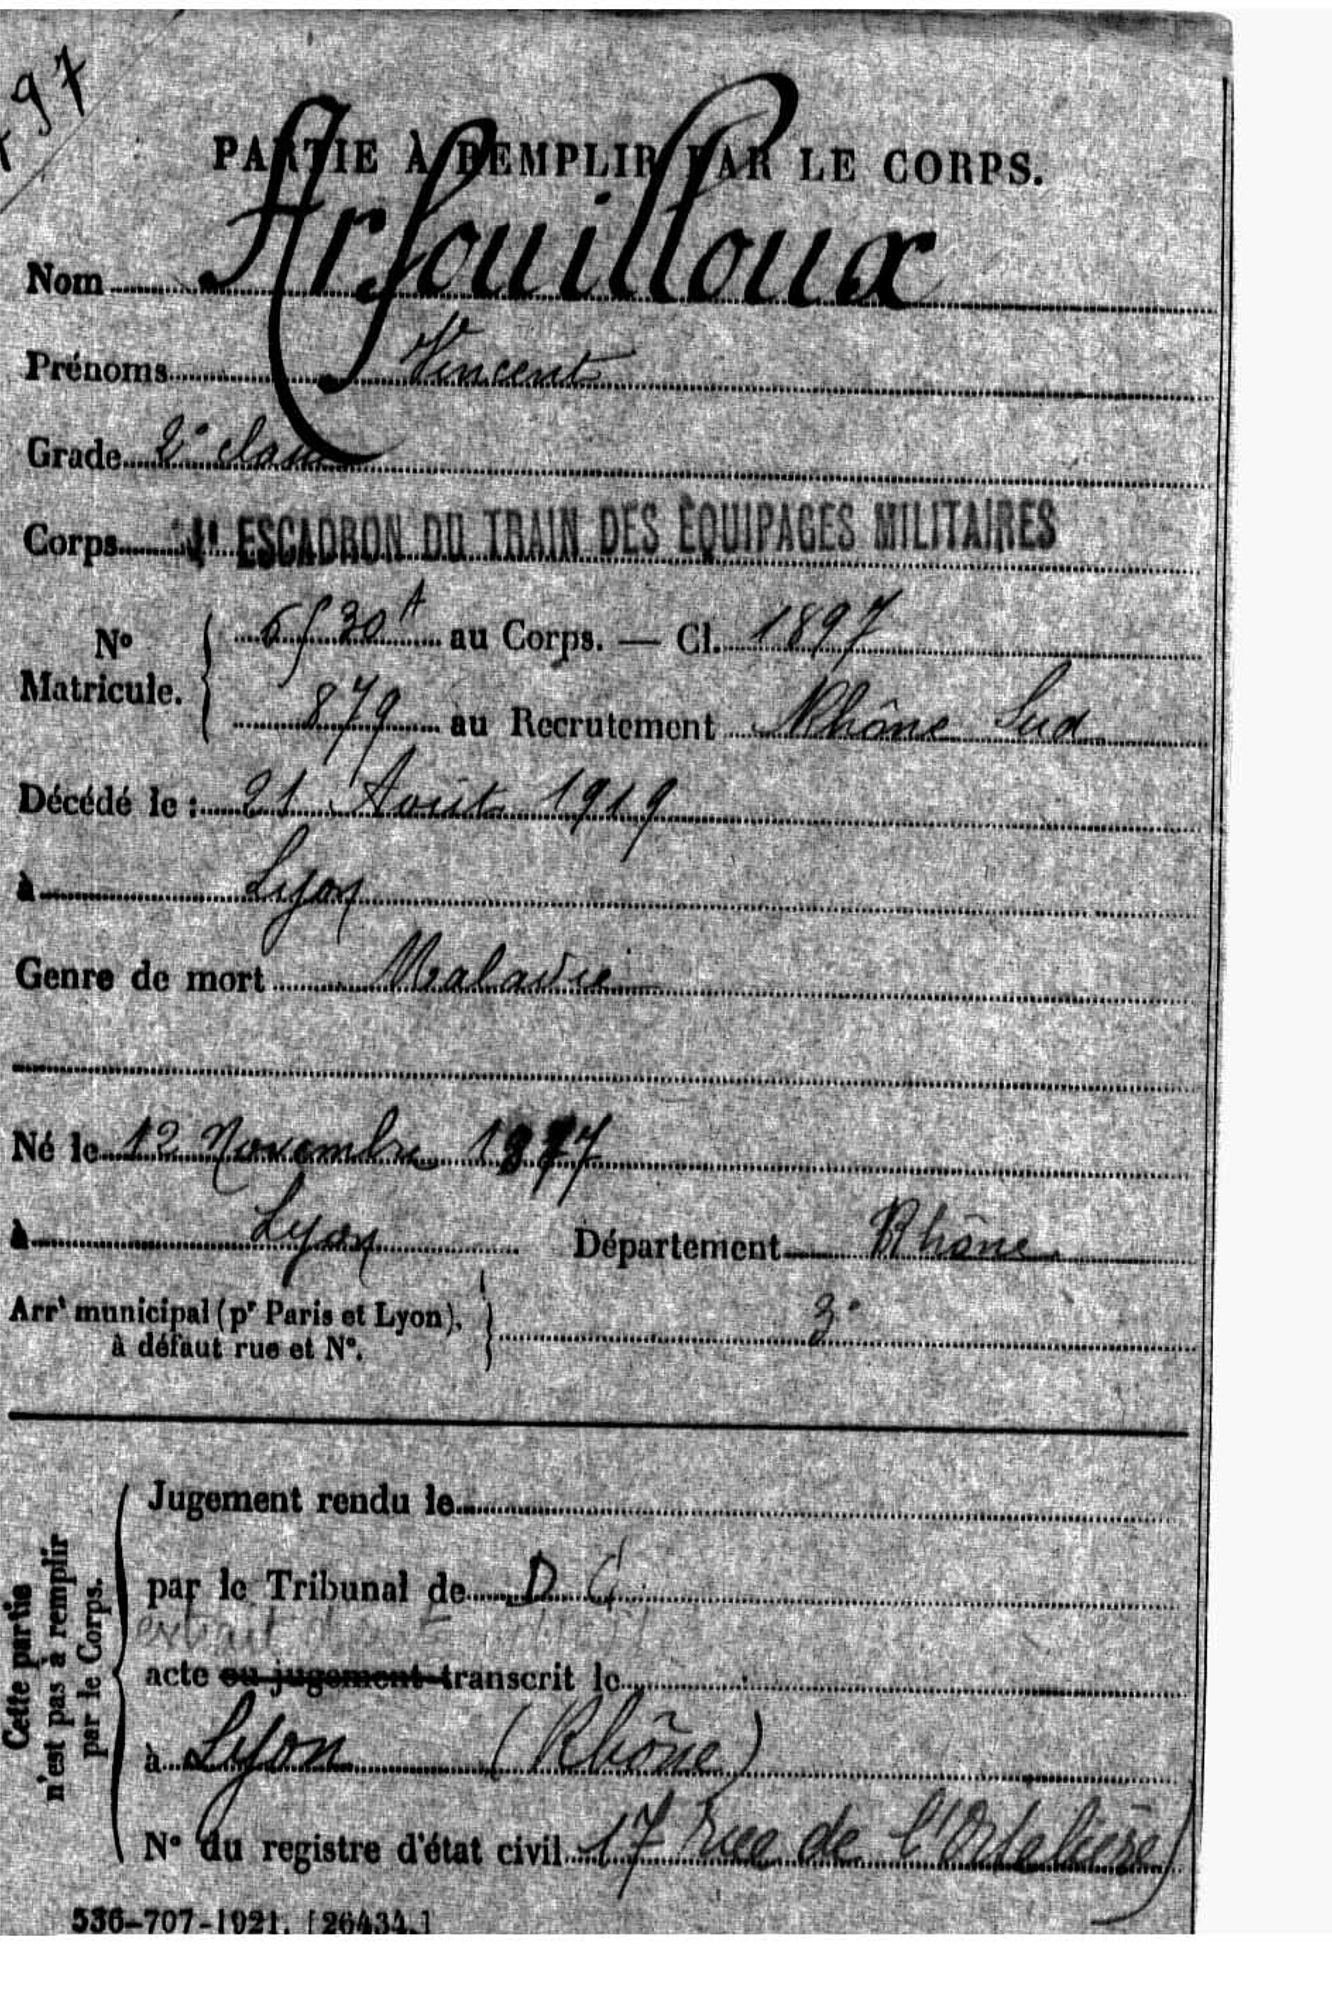 97
PARTIE À REMPLIR PAR LE CORPS.
Nom Arfouilloux
Prénoms Vincent
Grade 2e classe
Corps ESCADRON DU TRAIN DES ÉQUIPAGES MILITAIRES
No Matricule. 6530A au Corps. — Cl. 1897
879 au Recrutement Rhône Sud
Décédé le : 21 Août 1919
à Lyon
Genre de mort Maladie
Né le 12 Novembre 1877
à Lyon Département Rhône
Arrt municipal (pr Paris et Lyon), à défaut rue et No. 3e
Cette partie n'est pas à remplir par le Corps.
Jugement rendu le
par le Tribunal de D G
extrait
acte ou jugement transcrit le
à Lyon (Rhône)
No du registre d'état civil 17 rue de
536-707-1921. [26434.]